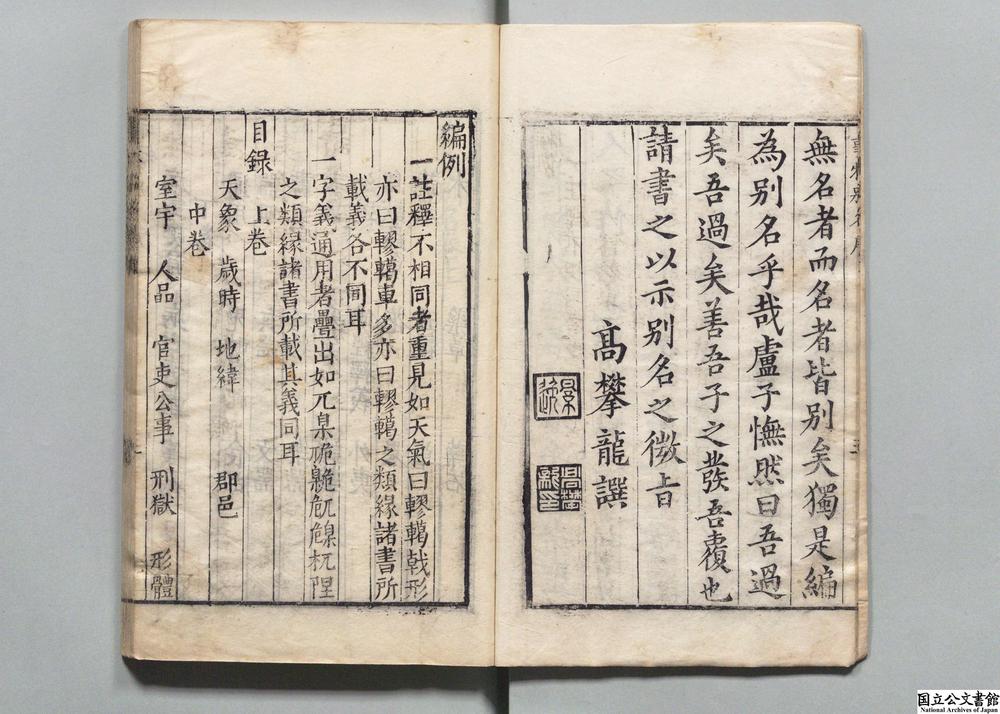 無名者而名者皆別矣獨是編
為別名乎哉盧子憮然曰吾過
矣吾過矣善吾子之發吾覆也
請書之以示別名之微旨
高攀龍譔
景逸
高攀龍印
編例
一註釋不相同者重見如天氣曰轇轕戟形
亦曰轇轕車多亦曰轇轕之類緣諸書所
載義各不同耳
一字義通用者疊出如兀臬
之類緣諸書所載其義同耳
目錄 上卷
天象 歲時 地緯 郡邑
中卷
室宇 人品 官吏公事 刑獄 形體
国立公文書館
National Archives of Japan